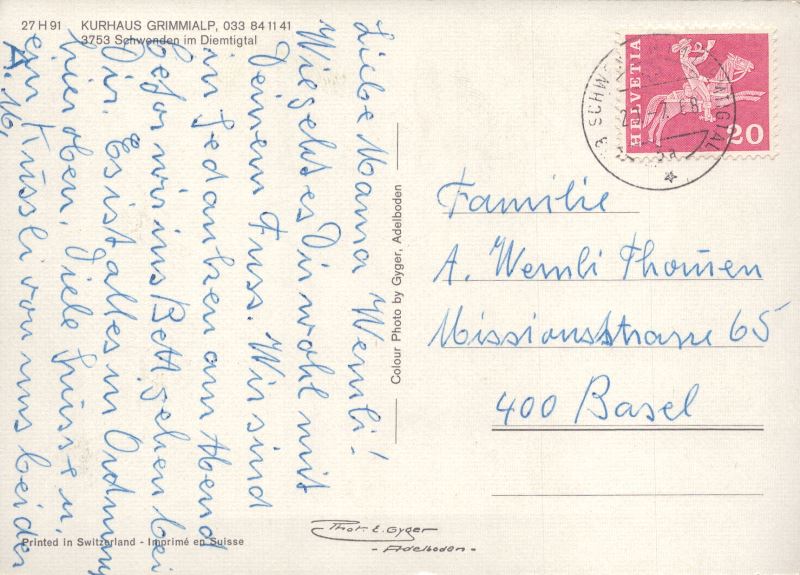 27 H 91 KURHAUS GRIMMIALP, 033 84 11 41
3753 Schwenden im Diemtigtal
Liebe Mama Wernli!
Wie geht es Dir wohl mit
Deinem Fuss. Wir sind
in Gedanken am Abend
befor wir ins Bett gehen bei
Dir. Es ist alles in Ordnung
hier oben. Viele Grüsse u.
ein Küssli von uns beiden
Colour Photo by Gyger, Adelboden
HELVETIA
20
Familie
A. Wernli Thomen
Missionsstrasse 65
400 Basel
Printed in Switzerland - Imprimé en Suisse
Phot. E. Gyger
- Adelboden -